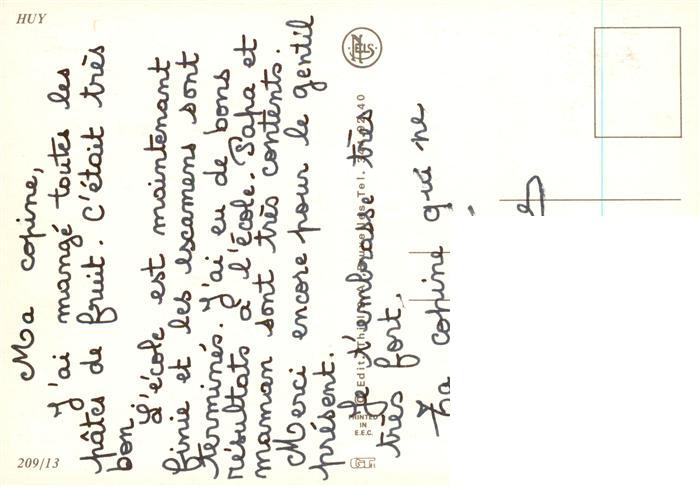 HUY
Ma copine,
J'ai mangé toutes les
pâtes de fruit. C'était très
bon.
L'école est maintenant
finie et les escamens sont
terminés. J'ai eu de bons
résultats à l'école. Papa et
maman sont très contents.
Merci encore pour le gentil
présent.
Je t'embrasse très
très fort,
Ta copine qui ne
209/13
PRINTED
IN
E.E.C.